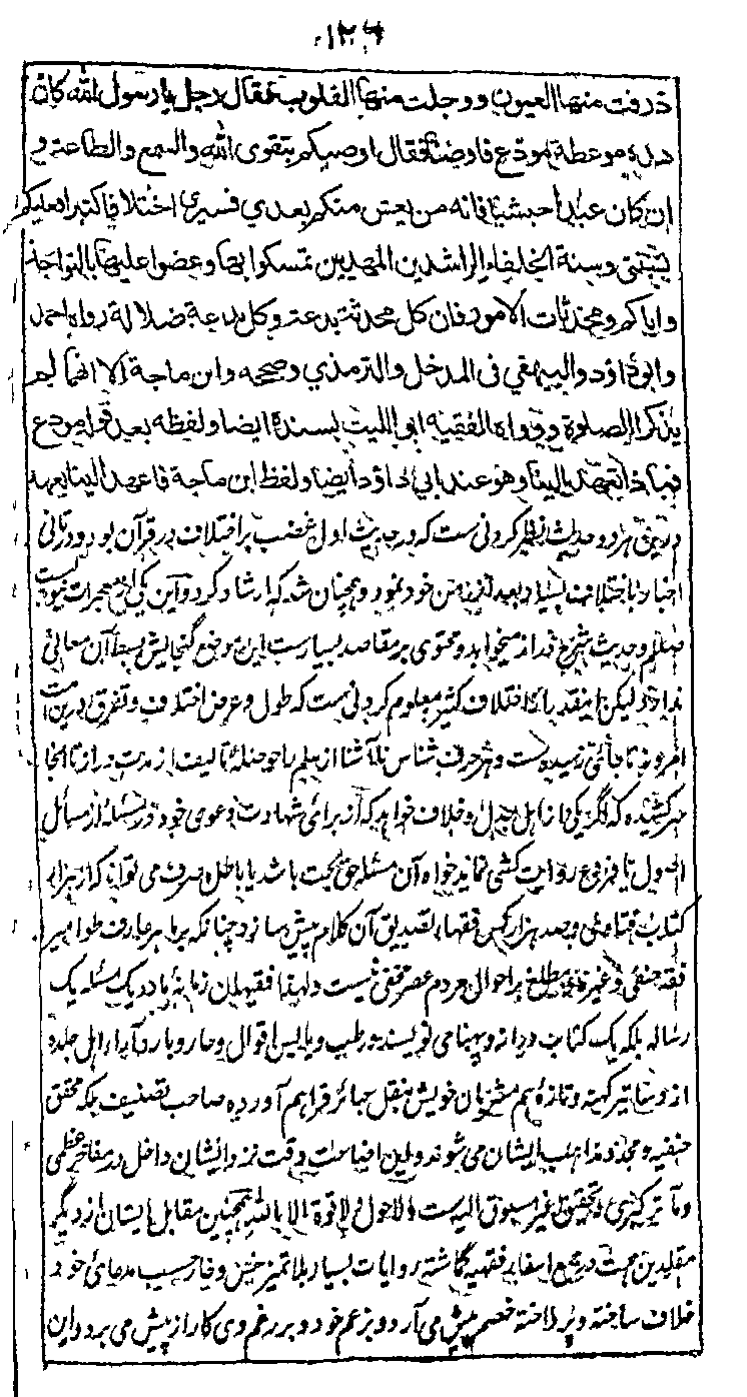 ۱۲۶
ذرفت منها العيون ووجلت منها القلوب فقال رجل يا رسول الله كان
هذه موعظة مودع فاوصنا فقال اوصيكم بتقوى الله والسمع والطاعة و
ان كان عبدا حبشيا فانه من يعش منكم بعدي فسيرى اختلافا كثيرا فعليكم
بسنتي وسنة الخلفاء الراشدين المهديين تمسكوا بها وعضوا عليها بالنواجذ
واياكم ومحدثات الامور فان كل محدثة بدعة وكل بدعة ضلالة رواه احمد
وابوداؤد والبيهقي فى المدخل والترمذي وصححه وابن ماجة الا انهما لم
يذكرا الصلوة ورواه الفقيه ابو الليث بسنده ايضا ولفظه بعد قوله مودع
فماذا تعهد الينا وهو عند ابي داؤد ايضا ولفظ ابن ماجة فاعهد الينا بعهد
درين هردو حديث نظر كردنى ست كه در حديث اول غضب بر اختلاف در قرآن بود و در ثانى
اخبار باختلاف بسيار بعد از زمن خود نمود و همچنان شد كه ارشاد كرد و اين يكى از معجزات نبوت است
صلعم وحديث شرح دراز ميخواهد ومحتوى بر مقاصد بسيار ست اين موضع گنجايش بسط آن معانى
ندارد ليكن اينقدر اختلاف كثير معلوم كردنى ست كه طول و عرض اختلاف و تفرق درين امت
امروز تا جائى رسيده است و هر حرف شناس ناآشنا از علم را حوصلهٔ تاليف از مدت دراز تا انجا
سر كشيده كه اگر يكى از اهل جدل و خلاف خواهد كه از براى شهادت دعوى خود در مسئله از مسائل
اصول يا فروع روايت كشى نمايد خواه آن مسئله حق بحت باشد يا باطل صرف مى تواند كه از هزار
كتاب فتاوى و صد هزار كس فقها تصديق آن كلام پيش سازد چنانكه بر ماهر عارف طوامير
فقه حنفى وغيره و مطلع بر احوال مردم عصر مخفى نيست ولهذا فقيهان زمانهٔ ما در يك مسئله يك
رساله بلكه يك كتاب دراز و پهنا مى نويسند و رطب و يابس اقوال و حار و بارد آراء اهل جلدة
از دساتير كهنه و تازهٔ هم مشربان خويش بنقل جائز فراهم آورده صاحب تصنيف بلكه محقق
حنفيه و مجدد مذاهب ايشان مى شوند و اين اضاعت وقت نزد ايشان داخل در مفاخر عظمى
و مآثر كبرى و تحقيق غير مسبوق اليه ست ولا حول ولا قوة الا بالله همچنين مقابل ايشان از ديگر
مقلدين همت در جمع اسفار فقهيه گماشته روايات بسيار بلا تميز خس و خار حسب مدعاى خود
خلاف ساخته و پرداخته خصم پيش مى آرد و بزعم خود و بر رغم وى كار از پيش مى برد و اين